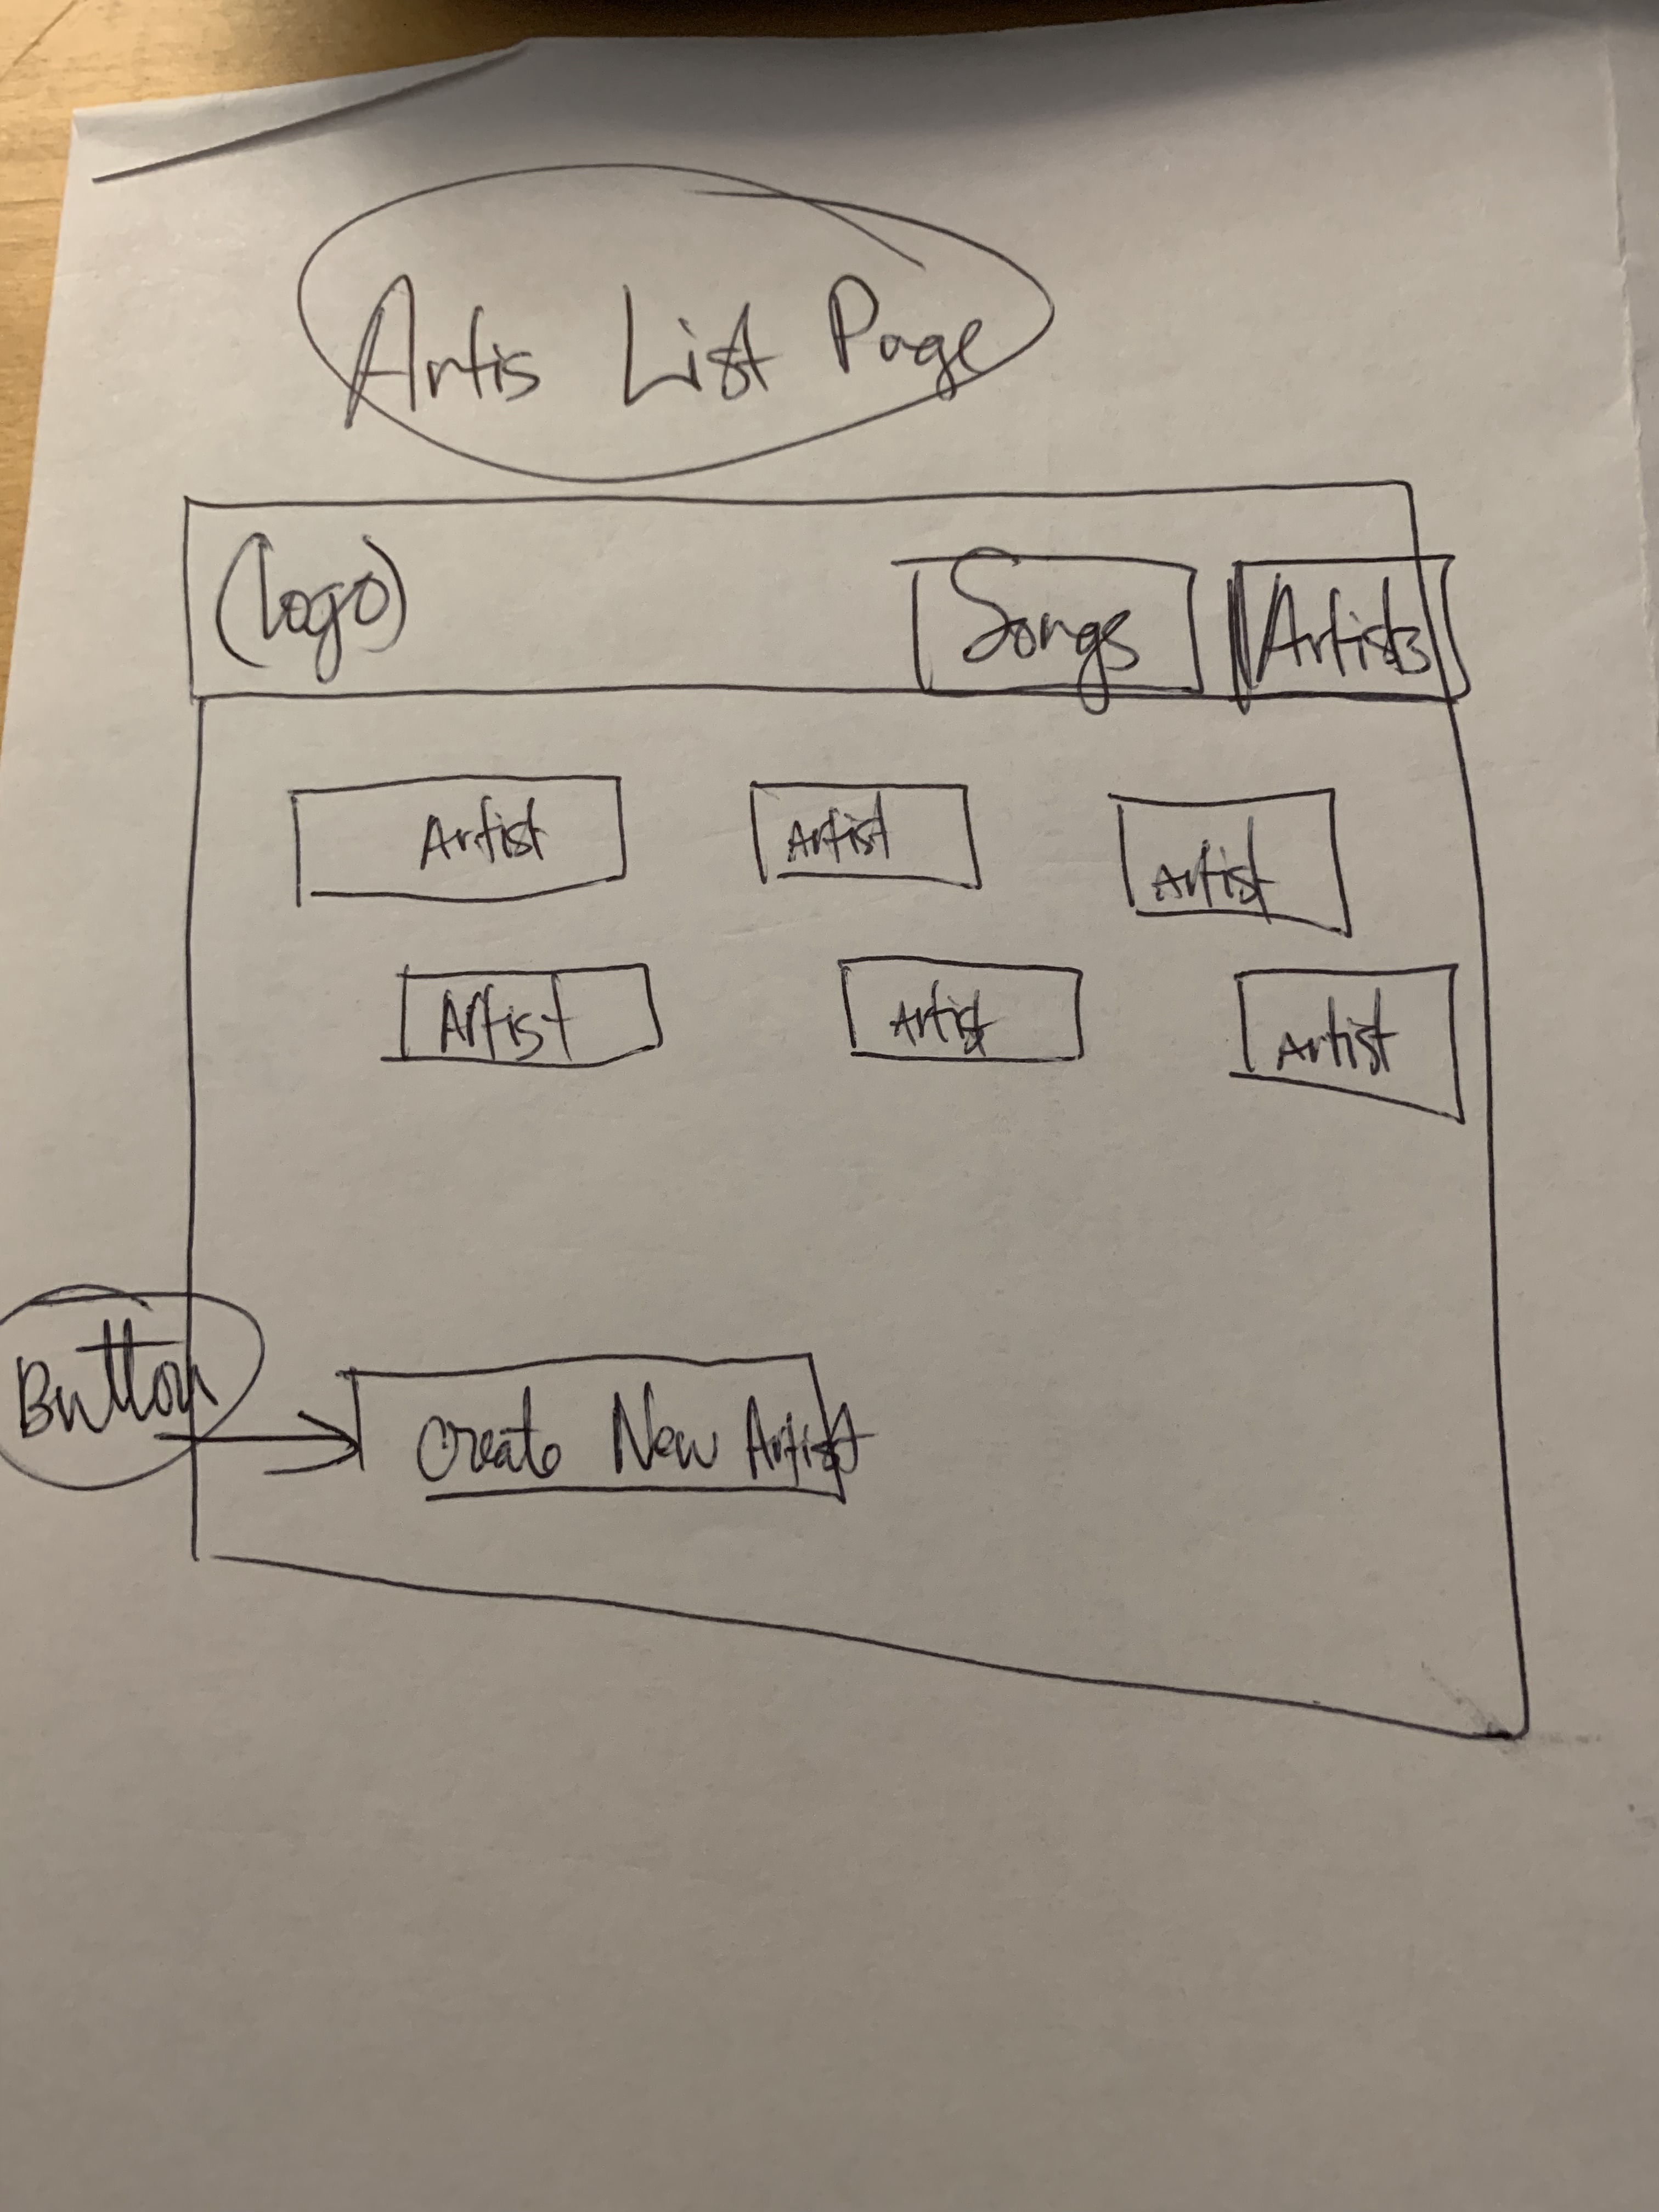 Artis List Page
(logo) Songs Artists
Artist Artist Artist
Artist Artist Artist
Button
Create New Artist